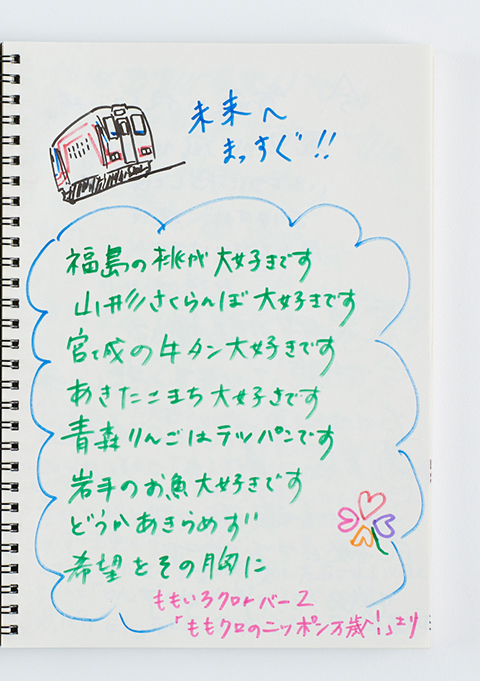 未来へ
まっすぐ!!
福島の桃が大好きです
山形さくらんぼ大好きです
宮城の牛タン大好きです
あきたこまち大好きです
青森りんごはテッパンです
岩手のお魚大好きです
どうかあきらめず
希望をその胸に
ももいろクローバーZ
「ももクロのニッポン万歳!」より